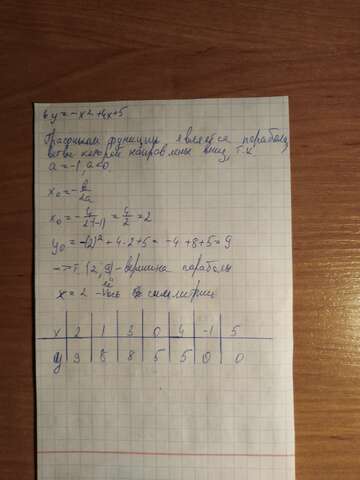 y=-x²+4x+5
Графиком функции является парабола,
ветви которой направлены вниз, т.к
a=-1, a<0.
x₀=-b/2a
x₀=-4/2·(-1)=4/2=2
y₀=-(2)²+4·2+5=-4+8+5=9
(2,9)-вершина параболы
x=2 - ось симметрии
x 2 1 3 0 4 -1 5
y 9 8 8 5 5 0 0